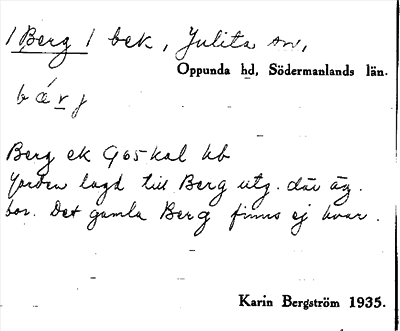 / Berg / bek, Julita sn,
Oppunda hd, Södermanlands län.
bárj
Berg ek 965 kal kb
Jorden lagd till Berg utg. där äg.
bor. Det gamla Berg finns ej kvar.
Karin Bergström 1935.